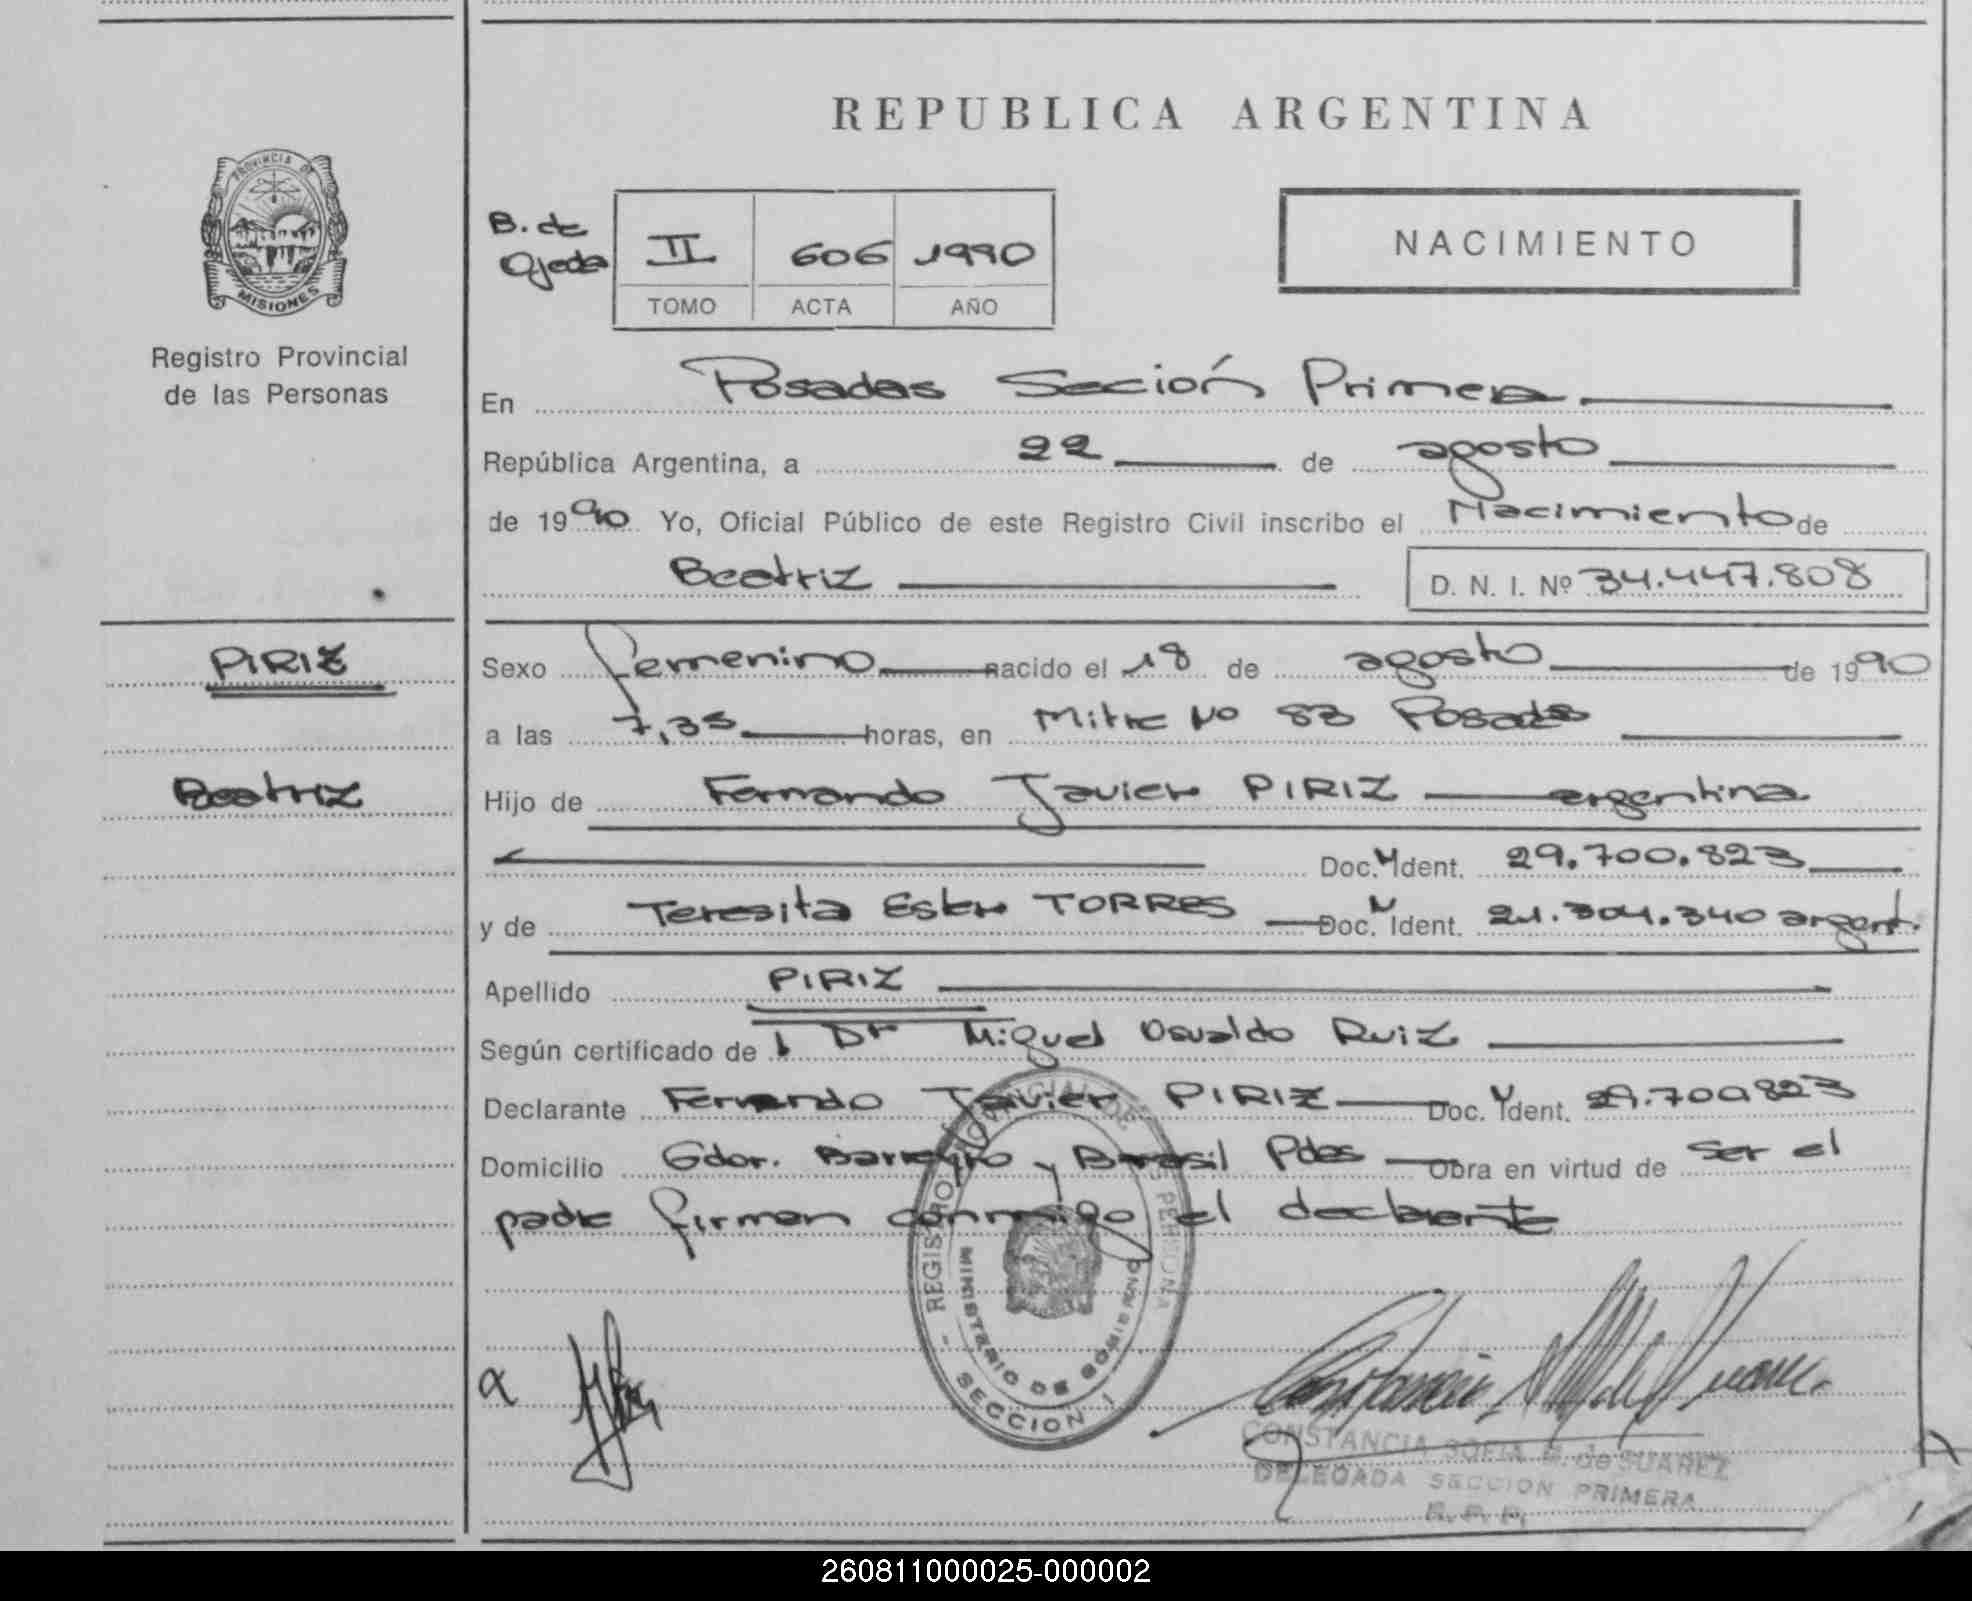 REPUBLICA ARGENTINA
PROVINCIA DE
MISIONES
Registro Provincial
de las Personas
B. de
Ojeda
II 606 1990
TOMO ACTA AÑO
NACIMIENTO
En Posadas Seción Primera
República Argentina, a 22 de agosto
de 1990 Yo, Oficial Público de este Registro Civil inscribo el Nacimiento de
Beatriz D. N. I. Nº 34.447.808
PIRIZ
Beatriz
Sexo femenino nacido el 18 de agosto de 1990
a las 7,35 horas, en Mitre No 83 Posadas
Hijo de Fernando Javier PIRIZ argentina
Doc. Ident. 29.700.823
y de Teresita Ester TORRES Doc. N Ident. 21.304.340 argent.
Apellido PIRIZ
Según certificado de Dr Miguel Osvaldo Ruiz
Declarante Fernando Javier PIRIZ Doc. Ident. 29.700823
Domicilio Gdor. Barreyro y Brasil Pdas Obra en virtud de ser el
padre firman conmigo el declarante
REGISTRO PROVINCIAL DE PERSONA
MINISTERIO DE GOBIERNO
- SECCION 1
CONSTANCIA SOFIA M. de SUAREZ
DELEGADA SECCION PRIMERA
R. P. P.
260811000025-000002